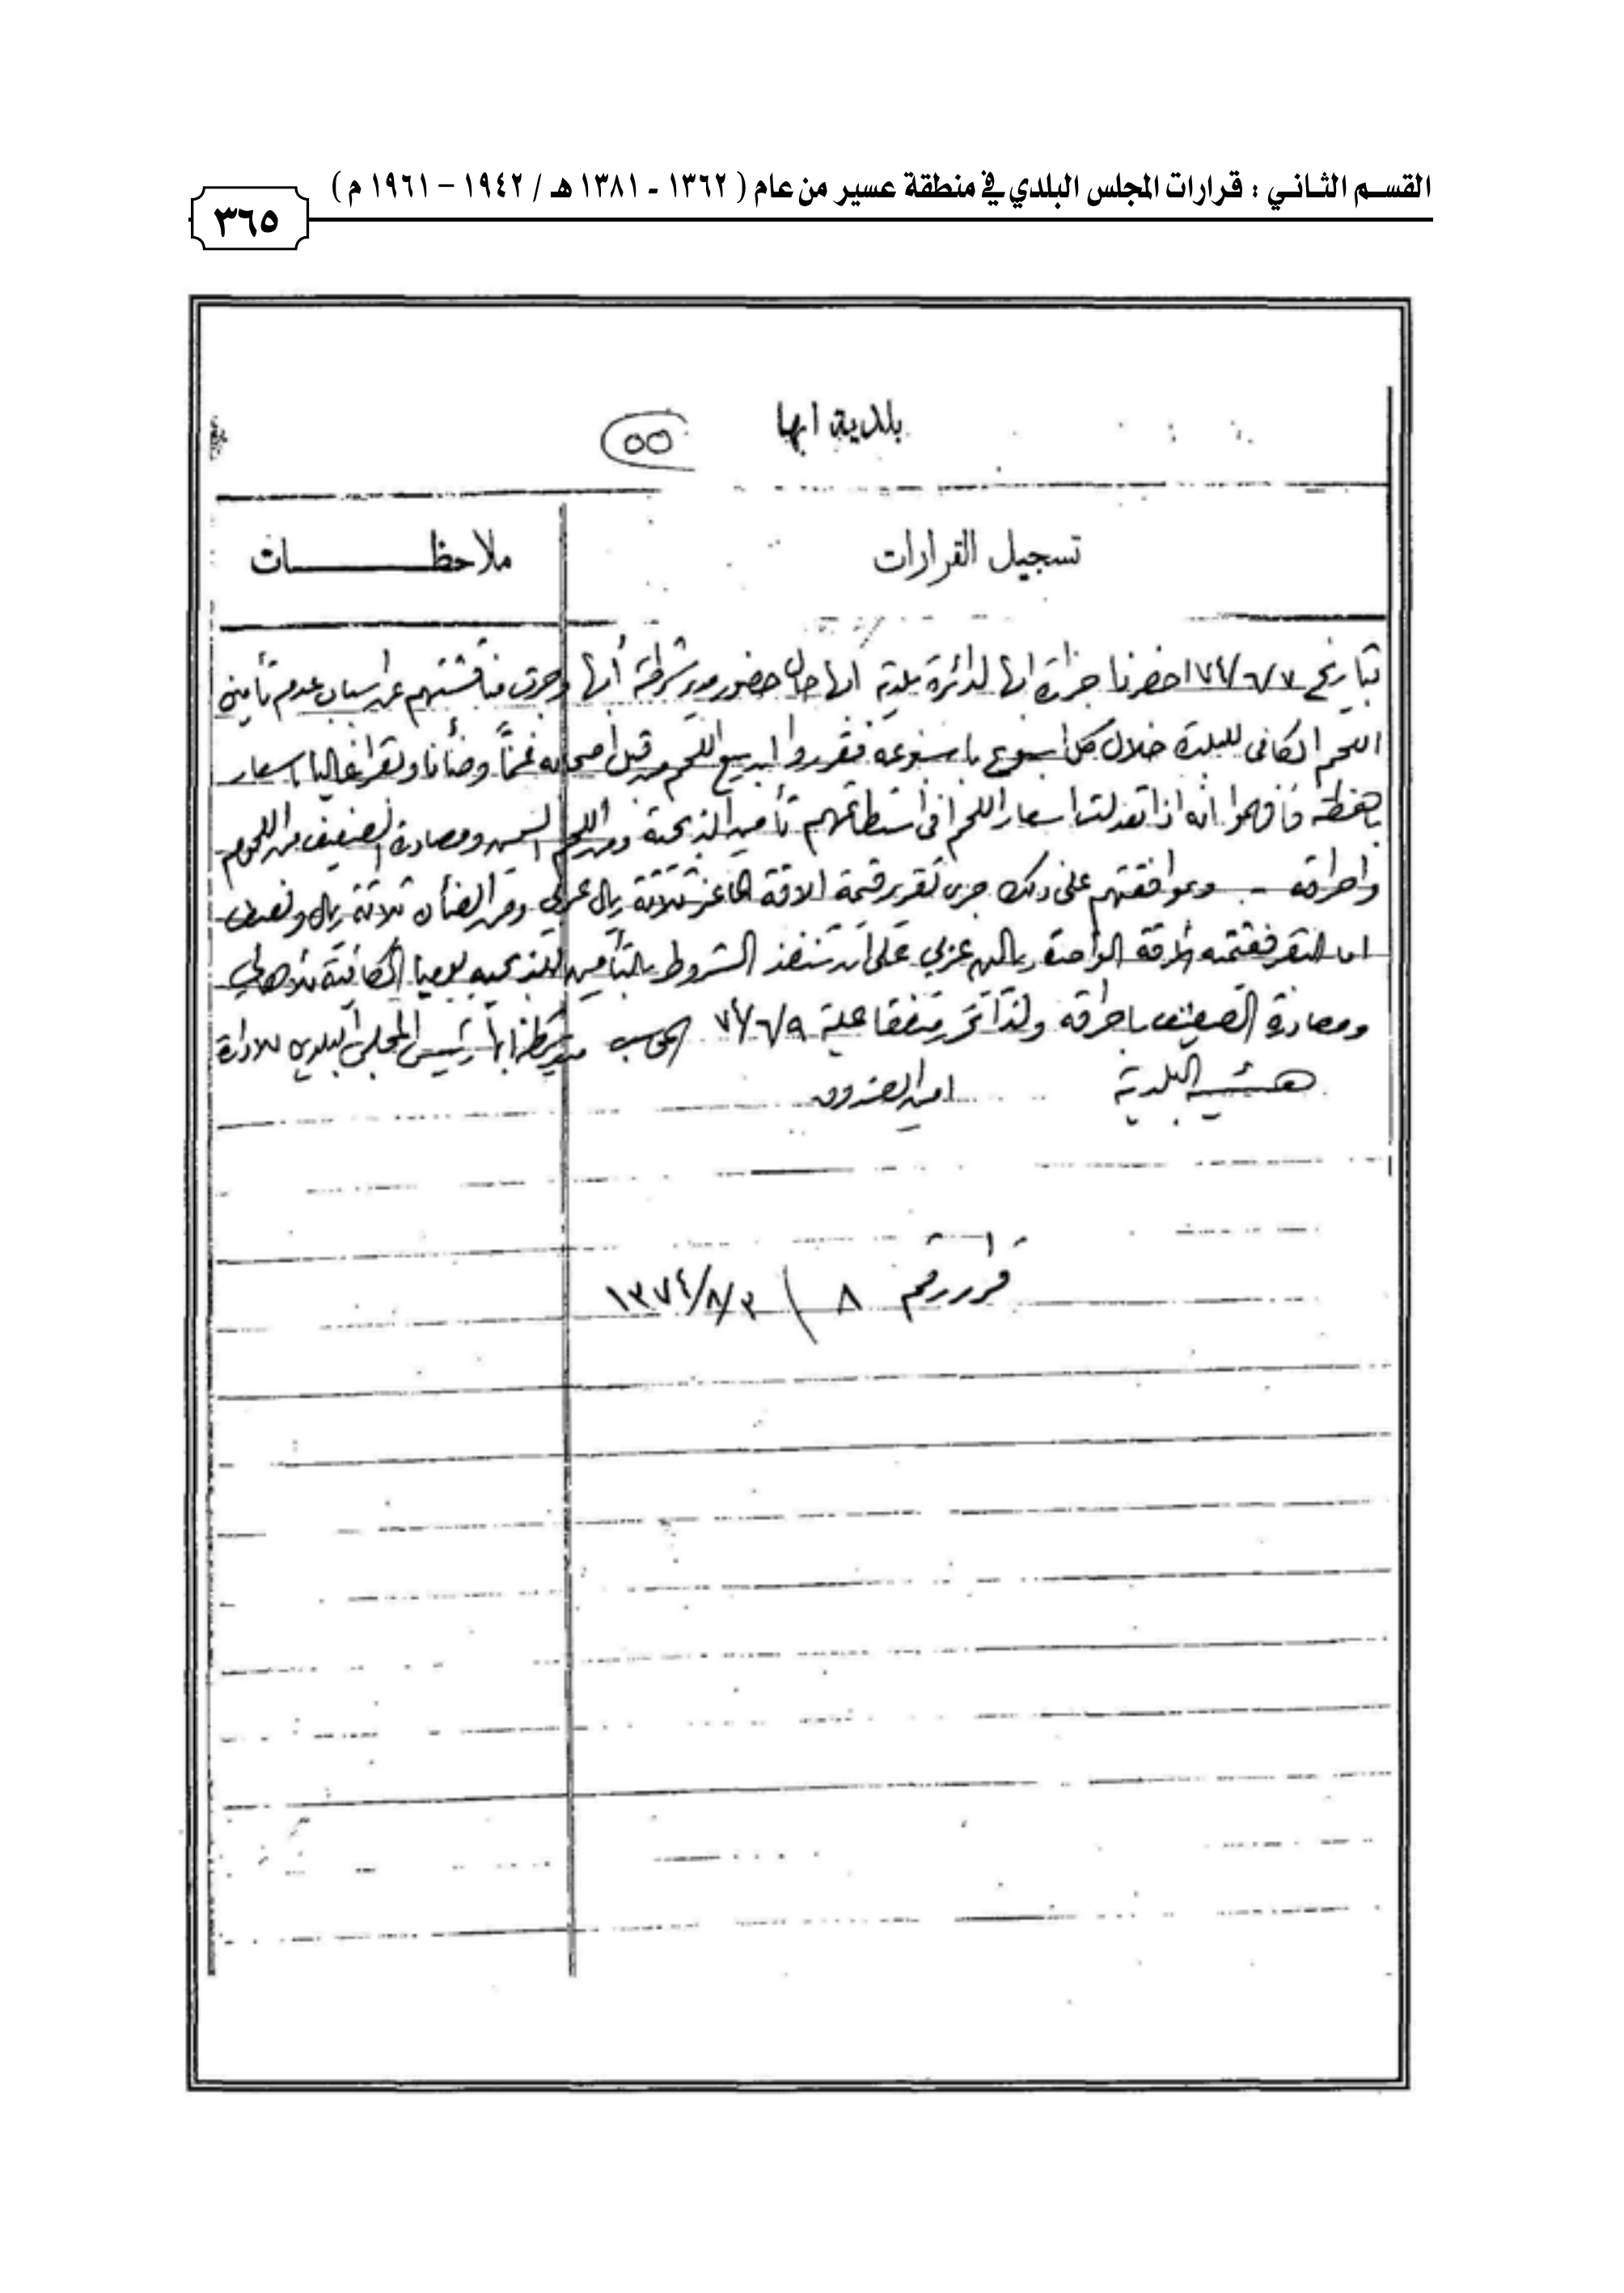 القسم الثاني : قرارات المجلس البلدي في منطقة عسير من عام ( ١٣٦٢ - ١٣٨١ هـ / ١٩٤٢ - ١٩٦١ م )
٣٦٥
بلدية ابها
٥٥
تسجيل القرارات
ملاحظـــــــات
بتاريخ ٧٤/٦/٧ احضرنا جزارة ابها لدائرة بلدية ابها حال حضور مدير شرطة أبها وجرى مناقشتهم عن اسباب عدم تأمين
اللحم الكافي للبلدة خلال كل اسبوع باسبوعه فقرروا ان بيع اللحم من قبل اصحابه غنماً وضأنا وبقرا غاليا باسعار
باهظة فافهموا انه اذا تعدلت اسعار اللحم في استطاعتهم تأمين الذبيحة ومن اللحم السمين ومصادرة الضعيف من اللحوم
واحراقه - وبموافقتهم على ذلك جرى تقرير قيمة الاقة الماعز ثلاثة ريال عربي ومن الضأن ثلاثة ريال ونصف
اما البقر فقيمة الأقة الواحدة ريالين عربي على أن تنفذ الشروط بالتأمين للذبيحه يوميا الكافية للأهالي
ومصادرة الضعيف باحراقه ولذا تحرر متفقا عليه ٧٤/٦/٩ المحاسب مدير شرطة ابها رئيس المجلس البلدي للادارة
هيئة البلدية امين الصندوق
قرار رقم ٨ / ١٣٧٤/٨/٣